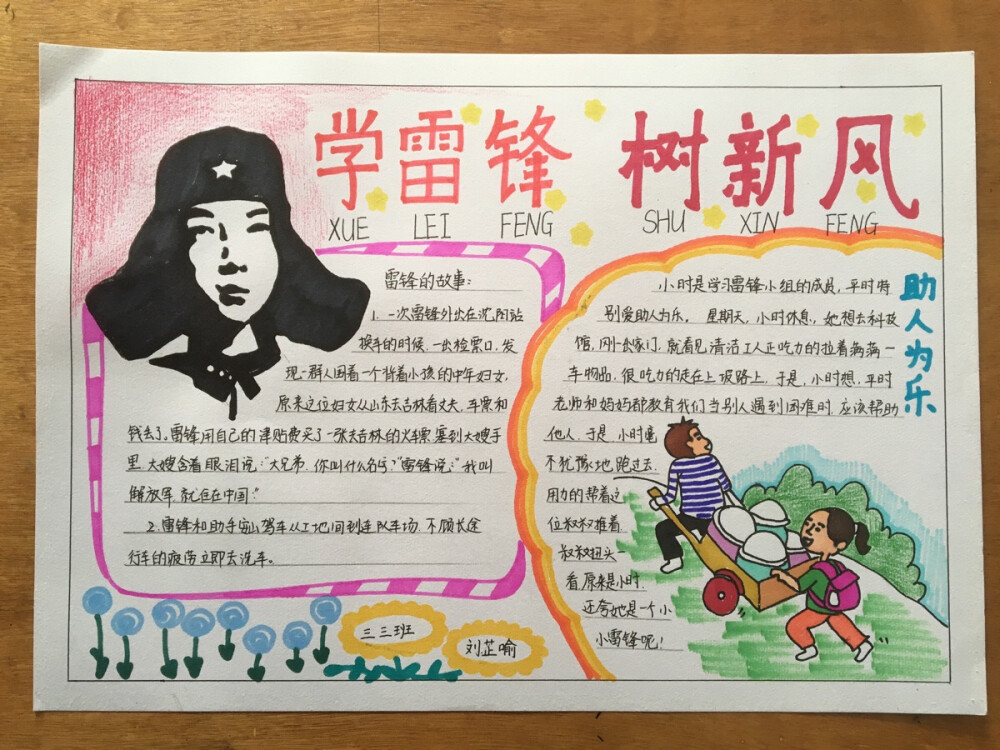 学雷锋 树新风
XUE LEI FENG SHU XIN FENG
雷锋的故事:
1. 一次雷锋外出在沈阳站
换车的时候,一出检票口,发
现一群人围着一个背着小孩的中年妇女,
原来这位妇女从山东去吉林看丈夫,车票和
钱丢了。雷锋用自己的津贴费买了一张去吉林的火车票塞到大嫂手
里,大嫂含着眼泪说:“大兄弟,你叫什么名字?”雷锋说:“我叫
解放军,就住在中国。”
2.雷锋和助手 驾车从工地回到连队车场,不顾长途
行车的疲劳立即去洗车。
助人为乐
小时是学习雷锋小组的成员,平时特
别爱助人为乐。星期天,小时休息,她想去科技
馆,刚出家门,就看见清洁工人正吃力的拉着满满一
车物品,很吃力的走在上坡路上,于是,小时想,平时
老师和妈妈都教育我们当别人遇到困难时,应该帮助
他人,于是,小时毫
不犹豫地跑过去,
用力的帮着这
位叔叔推着
叔叔扭头一
看原来是小时,
还夸她是一个小
小雷锋呢!
三三班
刘芷喻